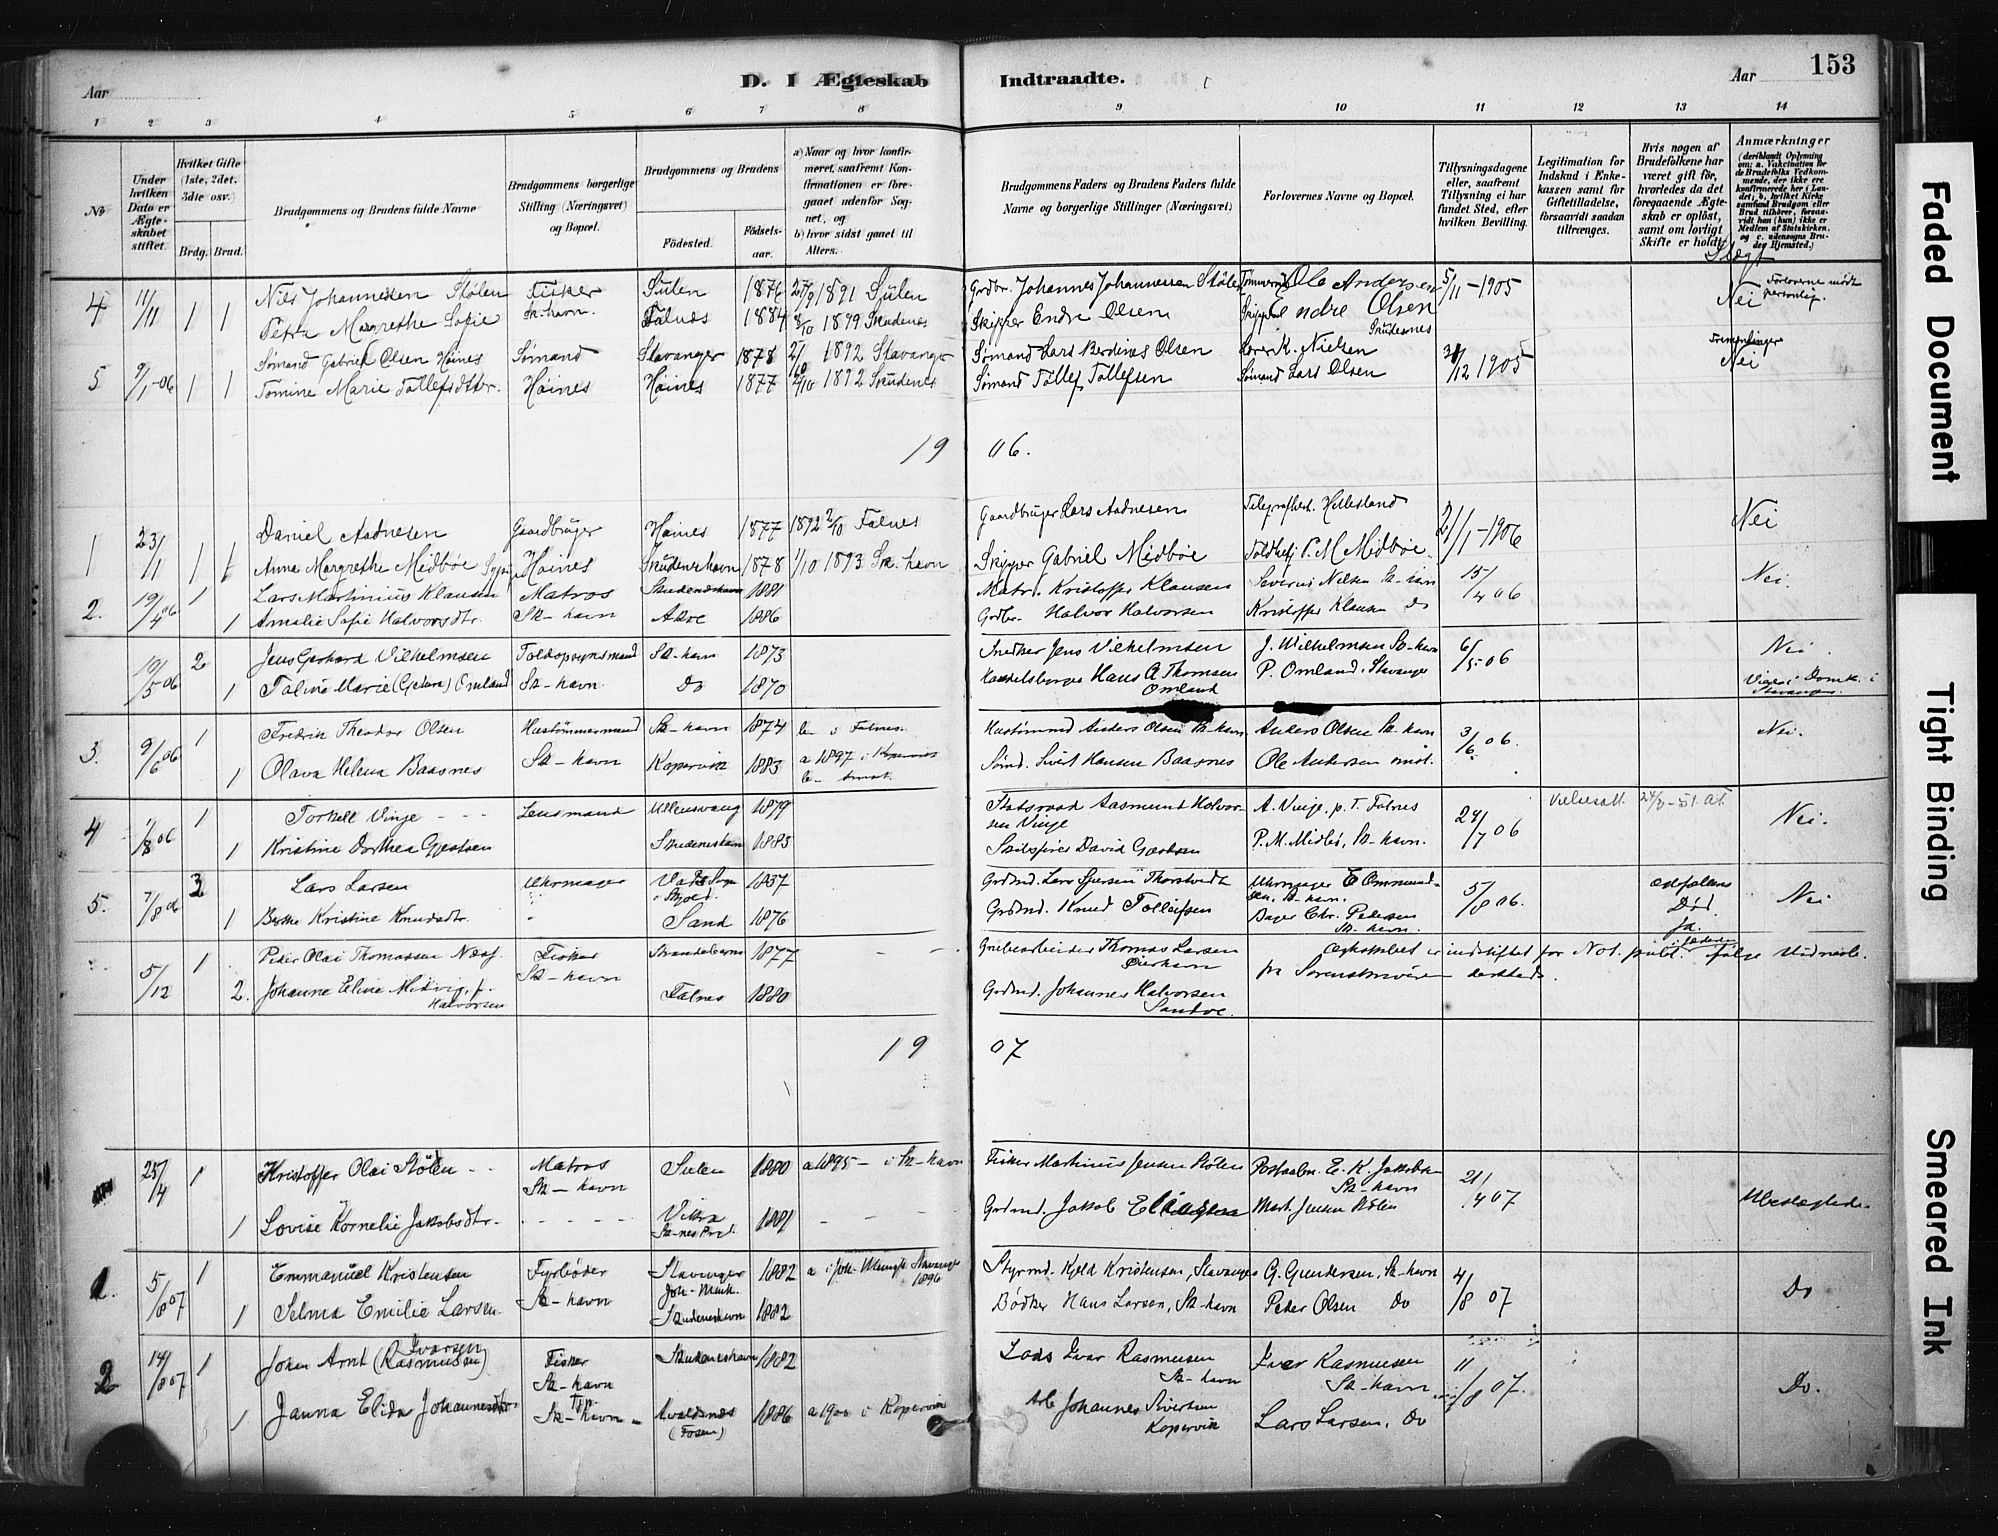 153
Aar
D. I Ægteskab
Indtraadte.
Aar
1 2 3 4 5 6 7 8 9 10 11 12 13 14
No
Under hvilken Dato er Ægteskabet stiftet.
Hvilket Gifte (1ste, 2det, 3die osv.)
Brdg. Brud.
Brudgommens og Brudens fulde Navne
Brudgommens borgerlige Stilling (Næringsvei) og Bopæl.
Brudgommens og Brudens
Fødested.
Fødselsaar.
a) Naar og hvor konfirmeret, saafremt Konfirmationen er foregaaet udenfor Sognet, og
b) hvor sidst gaaet til Alters.
Brudgommens Faders og Brudens Faders fulde Navne og borgerlige Stillinger (Næringsvei)
Forlovernes Navne og Bopæl.
Tillysningsdagene eller, saafremt Tillysning ei har fundet Sted, efter hvilken Bevilling.
Legitimation for Indskud i Enkekassen samt for Giftetilladelse, forsaavidt saadan tiltrænges.
Hvis nogen af Brudefolkene har været gift før, hvorledes da det foregaaende Ægteskab er opløst, samt om lovligt Skifte er holdt.
Anmærkninger
(deriblandt Oplysning om: a. Vakcination for de Brudefolks Vedkommende, der ikke ere konfirmerede her i Landet; b. hvilket Kirkesamfund Brudgom eller Brud tilhører, forsaavidt han (hun) ikke er Medlem af Statskirken, og c. udensogns Brudes Hjemsted.)
Slegt
4 11/11 1 1 Nils Johannesen Stølen Fisker Sulen 1876 27/9 1891 Sulen Grdbr. Johannes Johannessen Stølen Tømmermd Ole Andersen 5/11-1905 Nei Forloverne mødt personlig.
Petra Margrethe Sofie Sk. havn. Falnes 1884 8/10 1899 Skudenes Skipper Endre Olsen Skipper Endre Olsen Skudesnes
5 9/1-06 1 1 Sømand Gabriel Olsen Høines Sømand Stavanger 1878 1892 Stavanger Sømand Lars Berdines Olsen Lærer K. Nielsen 31/12 1905 Nei
Tomine Marie Tollefsdtter. Høines Høines 1877 2/10 1892 Skudenes Sømand Tollef Tollefsen Sømand Lars Olsen
19 06.
1 23/1 1 1 Daniel Aadnesen Gaardbruger Høines 1877 1892 2/10 Falnes Gaardbruger Lars Aadnesen Telegrafbest. Hettesland 21/1-1906 Nei
Anna Margrethe Midbøe Høines Skudeneshavn 1878 1/10 1893 Sk. havn Skipper Gabriel Midbøe Toldbetj P. M. Midbøe.
2. 19/4 06 1 Lars Martinius Klausen Matros Skudeneshavn 1881 Matr. Kristoffer Klausen Severin Nilsen Sk-havn 15/4 06 Nei.
1 Amalie Sofie Halvorsdtr. Sk-havn Akre 1886 Grdbr. Halvor Halvorsen Kristoffer Klausen Do
10/5 06 2 Jens Gerhard Vilhelmsen Toldopsynsmand Sk-havn 1873 Snedker Jens Vilhelmsen J. Wilhelmsen Sk-havn 6/5-06 Nei.
1 Taline Marie (Gjetura) Omland Sk-havn. Do 1870 Handelsborger Hans A Thomsen Omland P. Omland, Stavanger Viet i Domk. i Stavanger.
3. 9/6 06 1 Fredrik Theodor Olsen Hustømmermand Sk-havn 1874 b- i Falnes. Hustømmd Anders Olsen Sk-havn. Anders Olsen Sk-havn 3/6 06. Nei.
1 Olava Helena Baasnes Sk-havn Kopervik 1883 a 1897 i Kopervik Sømd. Sivert Hansen Baasnes Ole Andersen
4 1/8 06 1 Torkell Vinje - - - Lensmand Ullensvang 1879 Statsraad Aasmund Halvorsen Vinje A. Vinje, p. T. Falnes 24/7 06 Vielsesatt. 24/3-51. At. Nei.
1 Kristine Dorthea Gjertsen Skudeneshavn 1885 Skibsfører David Gjertsen P. M. Midbø, Sk-havn.
5. 7/8 06 3 Lars Larsen Uhrmager Vats Sogn i Skjold. 1837 Grdmd. Lars Thorstvedt Uhrmager E Ommundsen, Sk-havn. 5/8 06. Død. Ja. Nei
1 Berthe Kristine Knudsdtr. Sand 1876 Grdmd. Knud Tolleifsen Bager Chr. Pedersen Sk-havn.
5/12 1 Peder Olai Thomassen Næss. Fisker 1877 Grubearbeider Thomas Larsen Ægteskabet er indstiftet for Not. publ. i følge Udskrift
2. Johanne Eline Midvig, f. Halvorsen Sk-havn Falnes 1880 Grdmd. Johannes Halvorsen Sandve. fra Sorenskriveren
19 07
25/4 1 Kristoffer Olai Stølen - - Matros Sk-havn Sulen 1880 a 1895 - i Sk-havn Fisker Martinius Jensen Stølen E. K. Jakobsen Sk-havn 21/4 07 Ubeslægtede.
1 Lovise Kornelie Jakobsdtr. - - - - - Vikra Sk-nes Prd. 1881 - - - Grdmd. Jakob Eliassen Mart. Jensen Stølen
1. 5/8 07 1 Emmanuel Kristensen Fyrbøder Stavanger 1882 Stavanger 1896 Styrmd. Kjeld Kristensen, Stavanger G. Gundersen, Sk-havn 4/8 07 Do
1 Selma Emilie Larsen Sk-havn Skudeneshavn 1882 Bødker Hans Larsen, Sk-havn Peder Olsen Do
2 14/8 07 1 Johan Arnt Ivarsen (Rasmussen) Fisker Sk-havn Skudeneshavn 1882 Lods Ivar Rasmussen Sk-havn Ivar Rasmussen Sk-havn 11/8 07. Do.
1 Janna Elida Johannesdtr. Tjp. Sk-havn - Avaldsnes (Fosen) 1886 a 1900 i Kopervik Arb Johannes Sivertsen Kopervik Lars Larsen, Do
Faded Document
Tight Binding
Smeared Ink